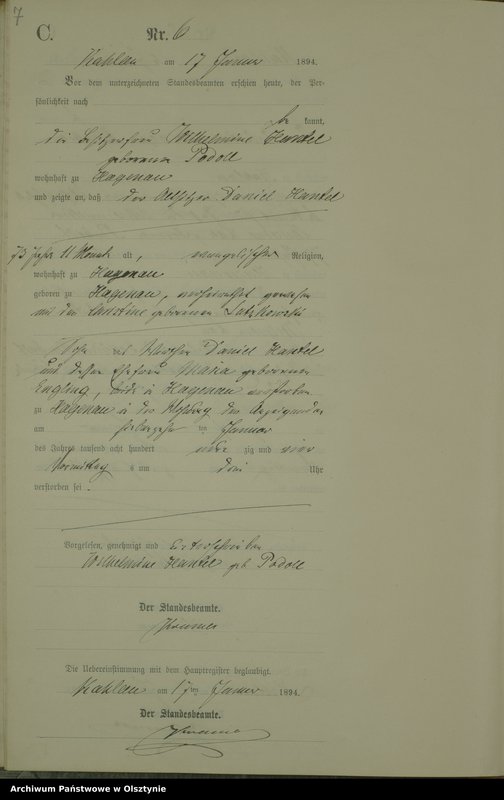 7
C.
Nr. 6
Kahlau am 17 Januar 1894.
Vor dem unterzeichneten Standesbeamten erschien heute, der Per-
sönlichkeit nach
be kannt,
die Besitzerfrau Wilhelmine Hantel
geborene Podoll
wohnhaft zu Hagenau
und zeigte an, daß der Altsitzer Daniel Hantel
73 Jahre 11 Monate alt, evangelischer Religion,
wohnhaft zu Hagenau
geboren zu Hagenau, verheirathet gewesen
mit der Christine geborenen
Sohn des Daniel Hantel
und dessen Ehefrau Maria geborenen
Engling, beide in Hagenau verstorben
zu Hagenau in der der Anzeigenden
am ten Januar
des Jahres tausend acht hundert zig und vier
Vormittag s um drei Uhr
verstorben sei.
Vorgelesen, genehmigt und unterschrieben
Wilhelmine Hantel geb Podoll
Der Standesbeamte.
Die Uebereinstimmung mit dem Hauptregister beglaubigt.
Kahlau am 17ten Januar 1894.
Der Standesbeamte.
Archiwum Państwowe w Olsztynie